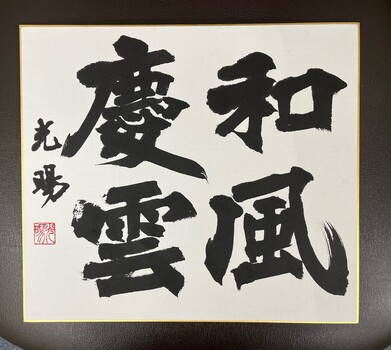 和風
慶雲
光陽